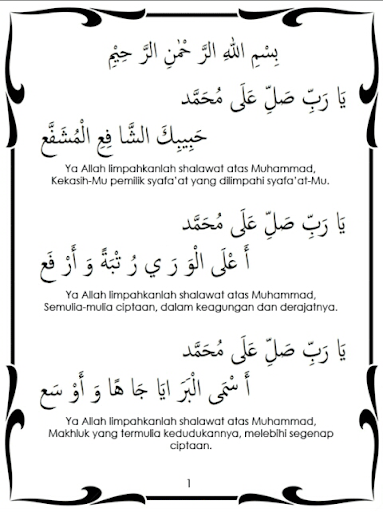 بِسْمِ اللهِ الرَّ حْمٰنِ الرَّ حِيْمِ
يَا رَبِّ صَلِّ عَلَى مُحَمَّد
حَبِيبِكَ الشَّا فِعِ الْمُشَفَّع
Ya Allah limpahkanlah shalawat atas Muhammad,
Kekasih-Mu pemilik syafa'at yang dilimpahi syafa'at-Mu.
يَا رَبِّ صَلِّ عَلَى مُحَمَّد
أَ عْلَى الْوَ رَ ي رُ تْبَةً وَ أَرْ فَع
Ya Allah limpahkanlah shalawat atas Muhammad,
Semulia-mulia ciptaan, dalam keagungan dan derajatnya.
يَا رَبِّ صَلِّ عَلَى مُحَمَّد
أَ سْمَى الْبَرَ ايَا جَا هًا وَ أَوْ سَع
Ya Allah limpahkanlah shalawat atas Muhammad,
Makhluk yang termulia kedudukannya, melebihi segenap
ciptaan.
1